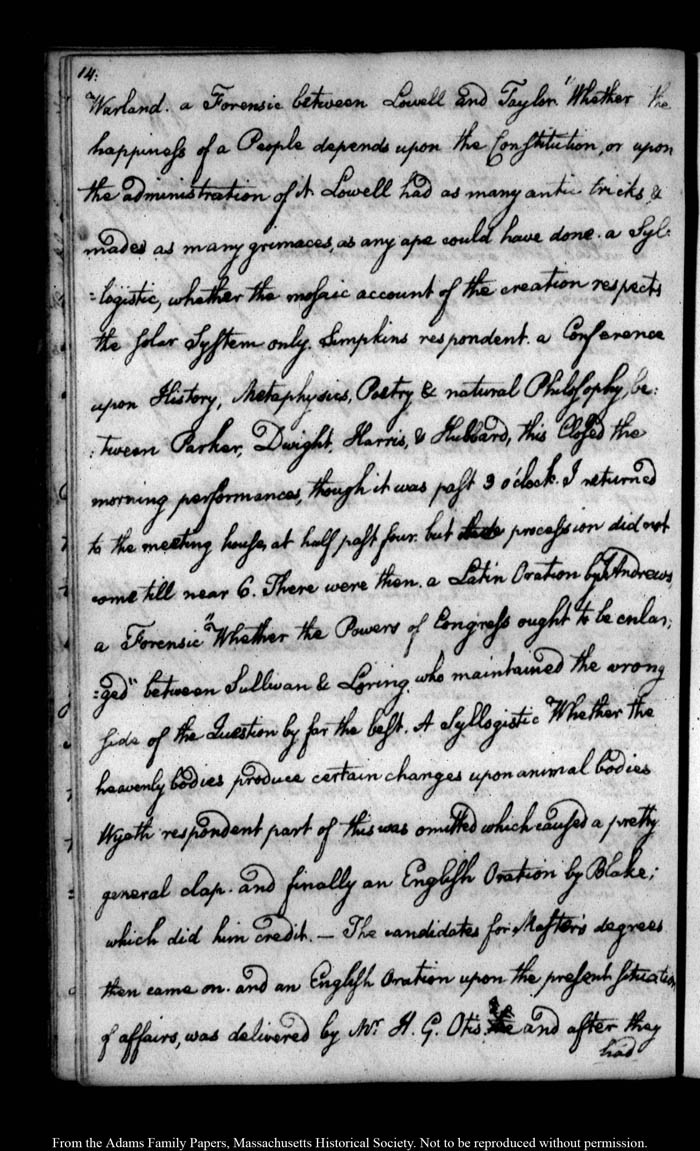 14:
Warland. a Forensic between Lowell and Taylor. "Whether the
happiness of a People depends upon the Constitution, or upon
the administration of it Lowell had as many antic tricks, &
mades as many grimaces, as any ape could have done. a Syl-
=logistic, whether the mosaic account of the creation respects
the solar System only. Simpkins respondent. a Conference
upon History, Metaphysics, Poetry & natural Philosophy, be:
:tween Parker, Dwight, Harris, & Hubbard, this Closed the
morning performances, though it was past 3 o'clock. I returned
to the meeting house, at half past four. but procession did not
come till near 6. There were then. a Latin Oration by Andrews,
a Forensic "Whether the Powers of Congress ought to be enlar;
:ged" between Sullivan & Loring. who maintained the wrong
side of the Question by far the best. A Syllogistic "Whether the
heavenly bodies produce certain changes upon animal bodies
Wyeth respondent part of this was omitted which caused a pretty
general clap. and finally an English Oration by Blake;
which did him credit. — The candidates for Master's degrees
then came on. and an English Oration upon the present situation
of affairs, was delivered by Mr. H. G. Otis. and after they
had
From the Adams Family Papers, Massachusetts Historical Society. Not to be reproduced without permission.